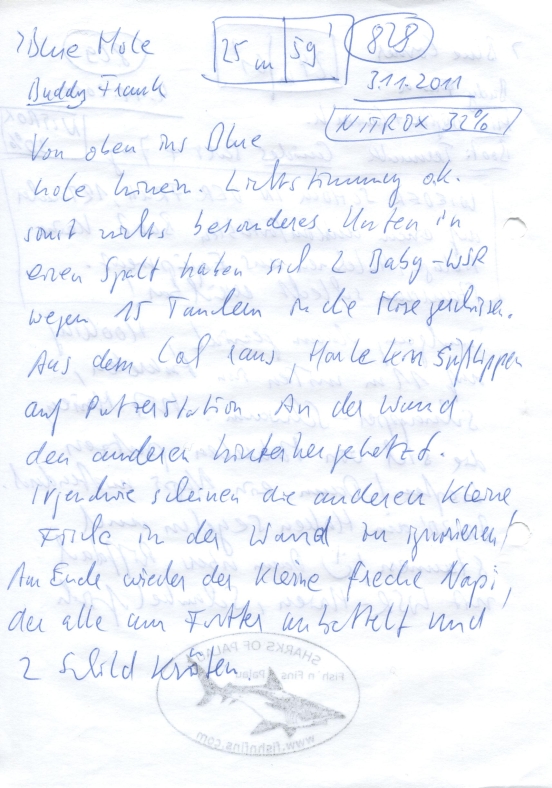 > Blue Hole
25 m 59'
828
Buddy Frank
3.11.2011
NITROX 32%
Von oben ins Blue
hole hinein. Lichtstimmung ok.
sonst nichts besonderes. Unten in
einen Spalt haben sich 2 Baby-WSR
wegen 15 Tauchern in die Hose geschissen.
Aus dem Loch raus, keine Süßlippen
auf Putzerstation. An der Wand
den anderen hinterhergehetzt.
Irgendwie scheinen die anderen kleine
Fische in der Wand zu ignorieren!
Am Ende wieder der kleine freche Napi,
der alle um Futter anbettelt und
2 Schildkröten.
SHARKS OF PALAU
Fish 'n Fins Palau
www.fishnfins.com